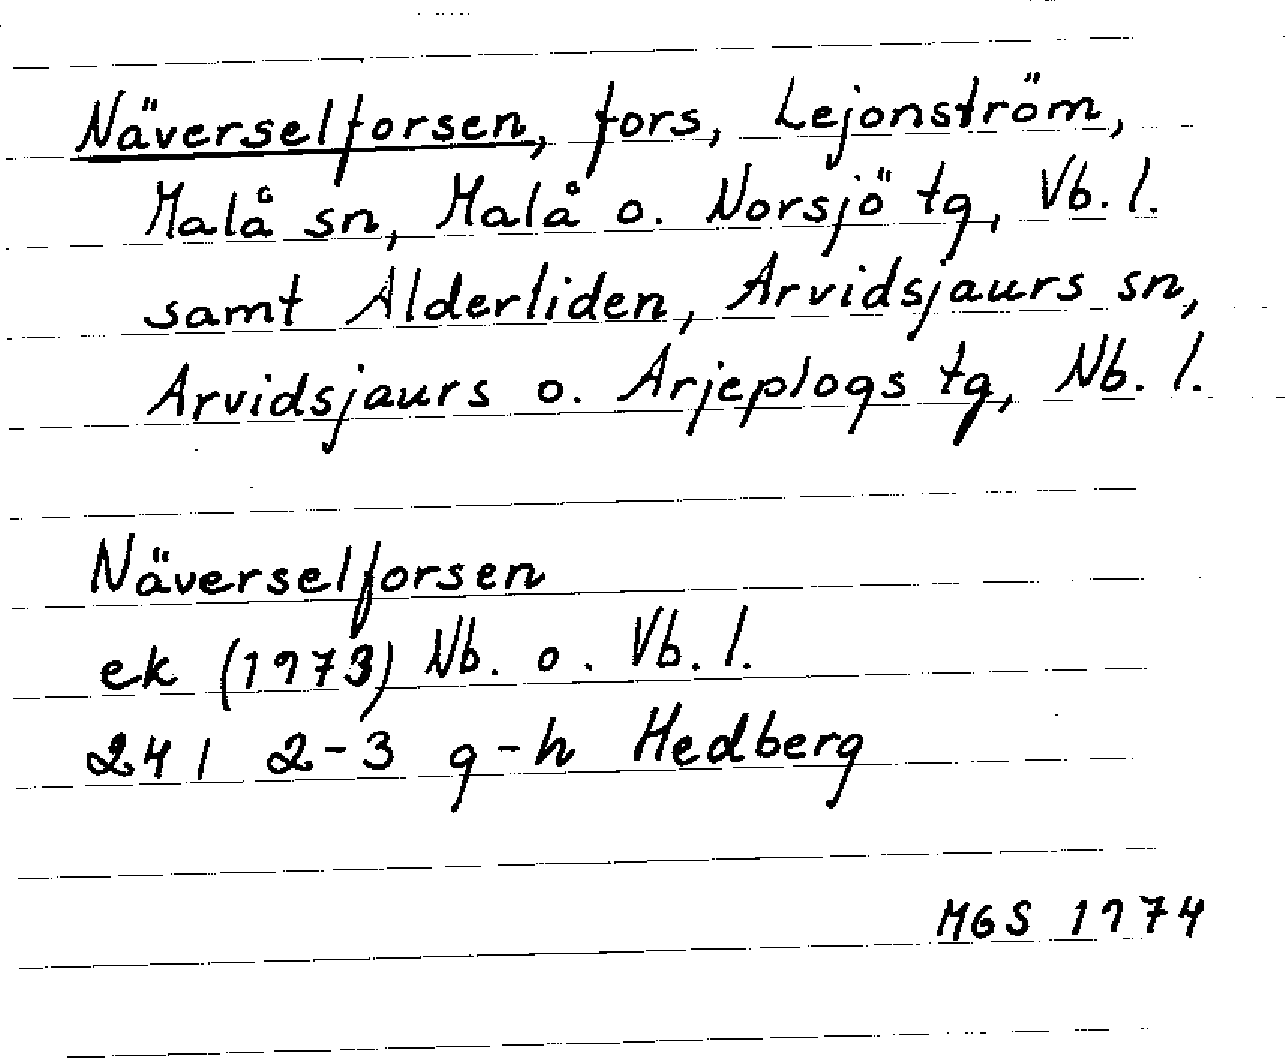 Näverselforsen, fors, Lejonström,
Malå sn, Malå o. Norsjö tg, Vb. l.
samt Alderliden, Arvidsjaurs sn,
Arvidsjaurs o. Arjeplogs tg, Nb. l.
Näverselforsen
ek (1973) Nb. o. Vb. l.
24 I 2-3 g-h Hedberg
MGS 1974